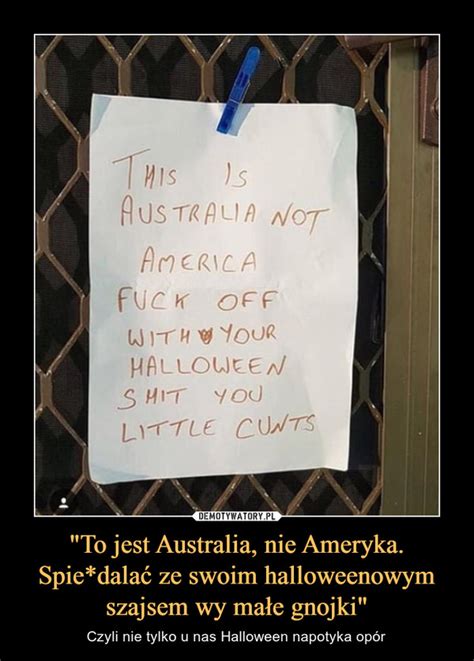 THIS IS
AUSTRALIA NOT
AMERICA
FUCK OFF
WITH YOUR
HALLOWEEN
SHIT YOU
LITTLE CUNTS
DEMOTYWATORY.PL
"To jest Australia, nie Ameryka.
Spie*dalać ze swoim halloweenowym
szajsem wy małe gnojki"
Czyli nie tylko u nas Halloween napotyka opór